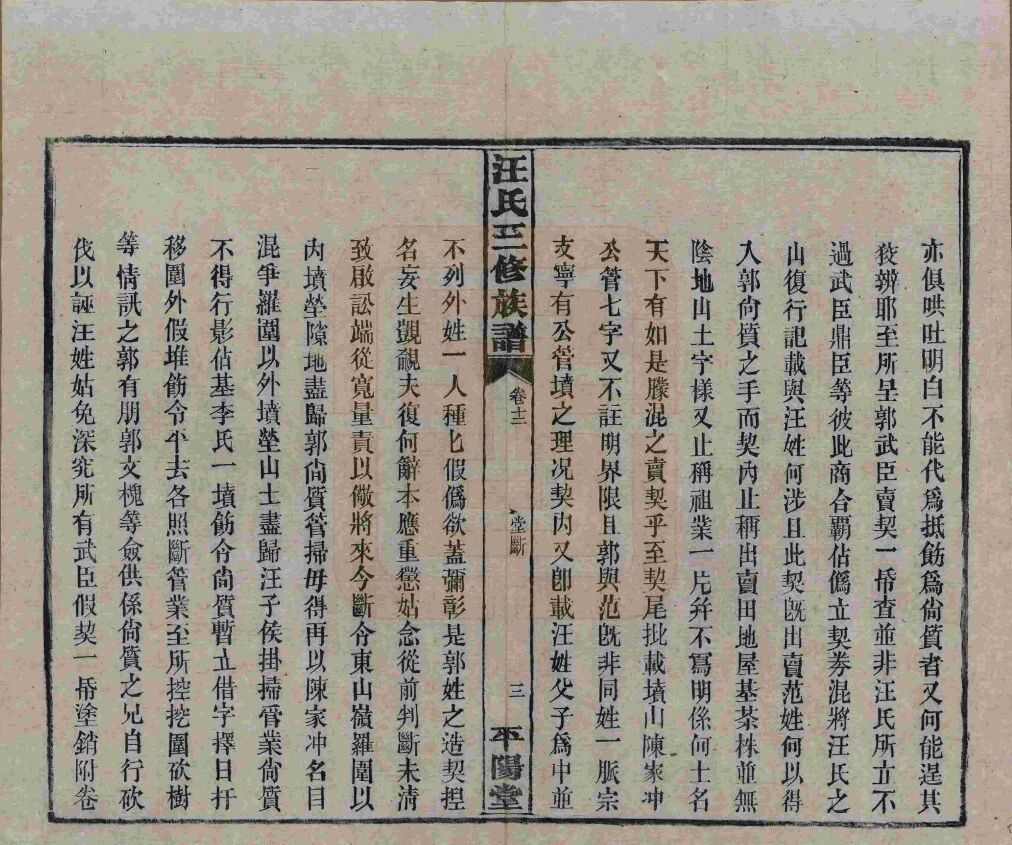 亦俱哄吐明白不能代爲抵飾爲尙質者又何能逞其
狡辨耶至所呈郭武臣賣契一帋查並非汪氏所立不
過武臣鼎臣等彼此商合覇佔僞立契劵混將汪氏之
山復行記載與汪姓何涉且此契既出賣范姓何以得
入郭尙質之手而契內止稱出賣田地屋基茶株並無
陰地山土字樣又止稱祖業一片幷不寫明係何土名
天下有如是朦混之賣契乎至契尾批載墳山陳家冲
公管七字又不註明界限且郭與范既非同姓一脈宗
支寧有公管墳之理况契內又卽載汪姓父子爲中並
汪氏三修族譜
卷十二
堂斷
三
平陽堂
不列外姓一人種匕假僞欲蓋彌彰是郭姓之造契揑
名妄生覬覦夫復何辭本應重懲姑念從前判斷未淸
致啟訟端從寬量責以儆將來今斷令東山嶺羅圍以
內墳塋隙地盡歸郭尙質管掃毋得再以陳家冲名目
混爭羅圍以外墳塋山土盡歸汪子侯掛掃管業尙質
不得行影佔基李氏一墳飭令尙質暫立借字擇日扦
移圍外假堆飭令平去各照斷管業至所控挖圍砍樹
等情訊之郭有朋郭文槐等僉供係尙質之兄自行砍
伐以誣汪姓姑免深究所有武臣假契一帋塗銷附卷